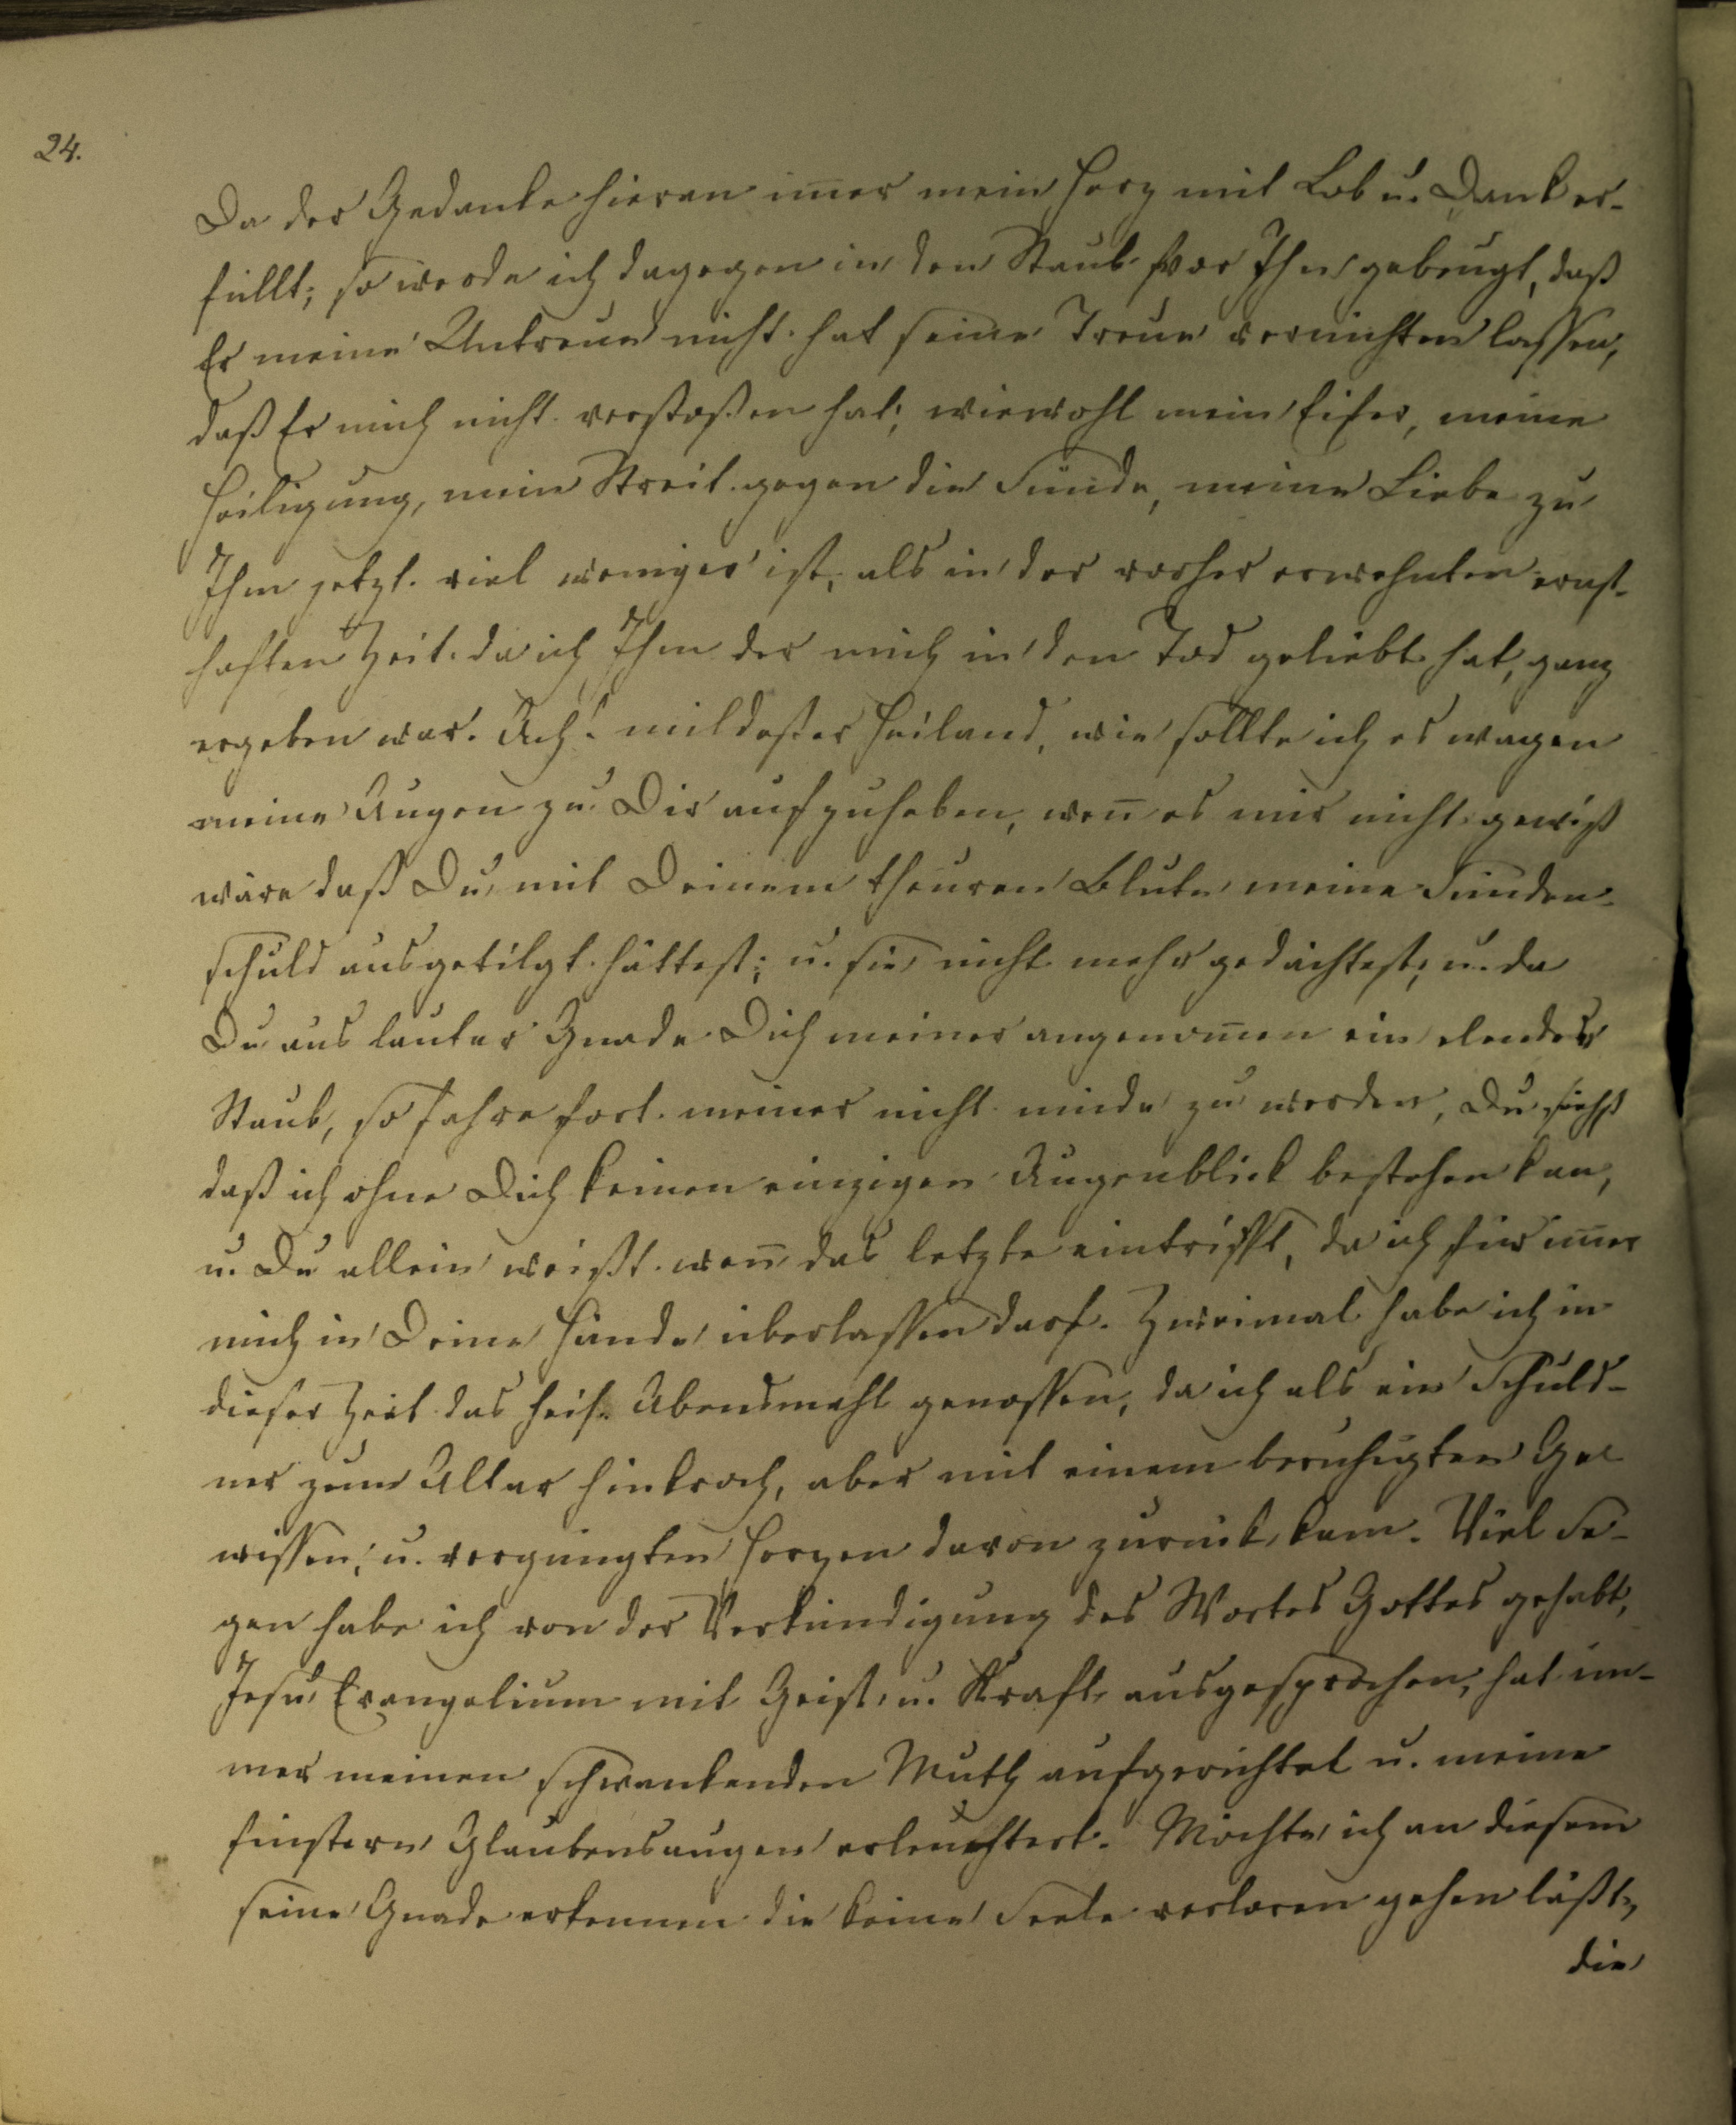 24.
Da der Gedanke hieran im̅er mein Herz mit Lob u. Dank er-
füllt; so werde ich dagegen in den Staub vor Ihn gebeugt, daß
Er meine Untreue nicht hat seine Treue vernichten lassen,
daß Er mich nicht verstoßen hat; wiewohl mein Eifer, meine
Heiligung, mein Streit gegen die Sünde, meine Liebe zu
Ihm jetzt viel weniger ist, als in der vorher erwehnten ernst-
haften Zeit da ich Ihm der mich in den Tod geliebt hat, ganz
ergeben war. Ach! mildester Heiland, wie sollte ich es wagen
meine Augen zu Dir aufzuheben, wen̅ es mir nicht gewiß
wäre daß Du mit Deinem theuren Blute meine Sünden-
schuld ausgetilgt hättest; u. sie nicht mehr gedächtest; u. da
Du aus lauter Gnade Dich meiner angenom̅en ein elender
Staub, so fahre fort meiner nicht müde zu werden, Du siehst
daß ich ohne Dich keinen einzigen Augenblick bestehen kan,
u. Du allein weißt wen̅ das letzte eintrifft, da ich für im̅er
mich in Deine Hände überlassen darf. Zweimal habe ich in
dieser Zeit das heil. Abendmahl genossen, da ich als ein Schuld-
ner zum Altar hinkroch, aber mit einem beruhigten Ge-
wissen, u. vergnügten Herzen davon zurück kam. Viel Se-
gen habe ich von der Verkündigung des Wortes Gottes gehabt,
Jesu Evangelium mit Geist u. Kraft ausgesprochen, hat im-
mer meinen schwankenden Muth aufgerichtet u. meine
finstern Glaubensaugen erleuchtert. Möchte ich an diesem
seine Gnade erkennen die keine Seele verloren gehen läßt,
die